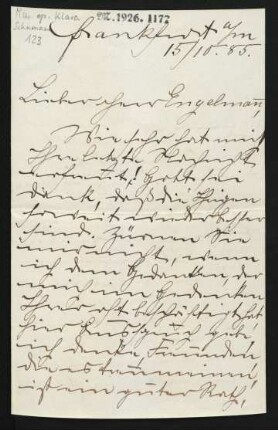 Mus. ep. Klara
Schumann
123
acc. 1926. 1177
Frankfurt a/m
15/10. 85.
Lieber Herr Engelmann,
Wie sehr hat mich
Ihre letzte Nachricht
erfreut! Gott sei
Dank, daß die
soweit wieder besser
sind. Zürnen Sie
mir nicht, wenn
ich dem Gedanken, der
mich im Gedenken
Ihrer oft beschäftigt hat
hier Ausdruck gebe,
ich denke, Freunden
die es treu meinen
ist ein guter Rath,